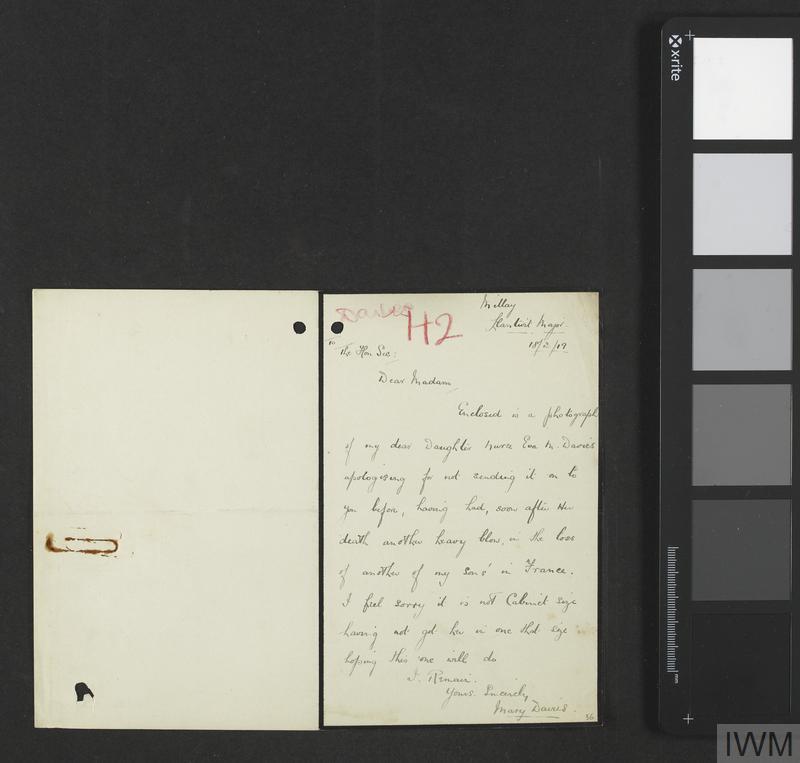 Davies
H2
Millay
Llantwit Major
18/2/19
To
The Hon Sec:
Dear Madam
Enclosed is a photograph
of my dear Daughter Nurse Eva M. Davies
apologising for not sending it on to
you before, having had, soon after Her
death another heavy blow, in the loss
of another of my sons' in France.
I feel sorry it is not Cabinet size
having not got her in one that size
hoping this one will do
I. Remain.
Yours. Sincerely,
Mary Davies.
36
x-rite
mm
IWM